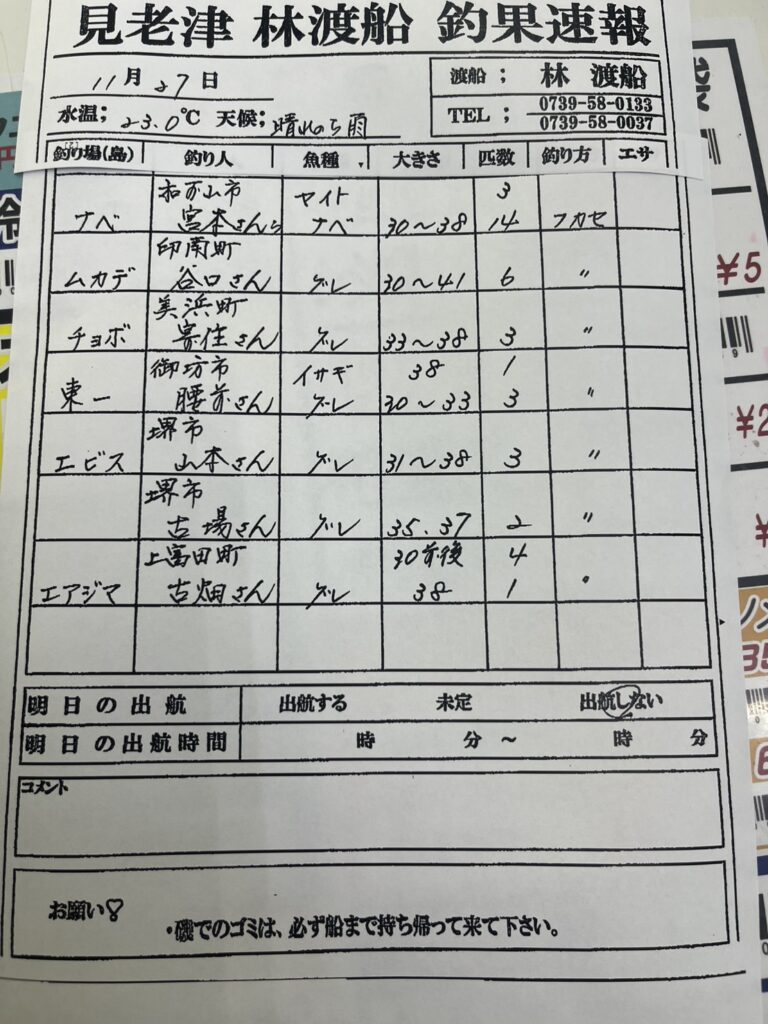 見老津 林渡船 釣果速報
11月27日
渡船; 林 渡船
水温; 23.0℃ 天候; 晴れのち雨
TEL; 0739-58-0133
0739-58-0037
釣り場(島) 釣り人 魚種 大きさ 匹数 釣り方 エサ
和歌山市 ヤイト 3
ナベ 宮本さんら ナベ 30～38 14 フカセ
印南町
ムカデ 谷口さん グレ 30～41 6 〃
美浜町
チョボ 寄住さん グレ 33～38 3 〃
御坊市 イサギ 38 1
東一 腰前さん グレ 30～33 3 〃
堺市
エビス 山本さん グレ 31～38 3 〃
堺市
古場さん グレ 35.37 2 〃
上富田町 30前後 4
エアジマ 古畑さん グレ 38 1 〃
明日の出航 出航する 未定 出航しない
明日の出航時間 時 分～ 時 分
コメント
お願い♡
・磯でのゴミは、必ず船まで持ち帰って来て下さい。
¥5
¥2